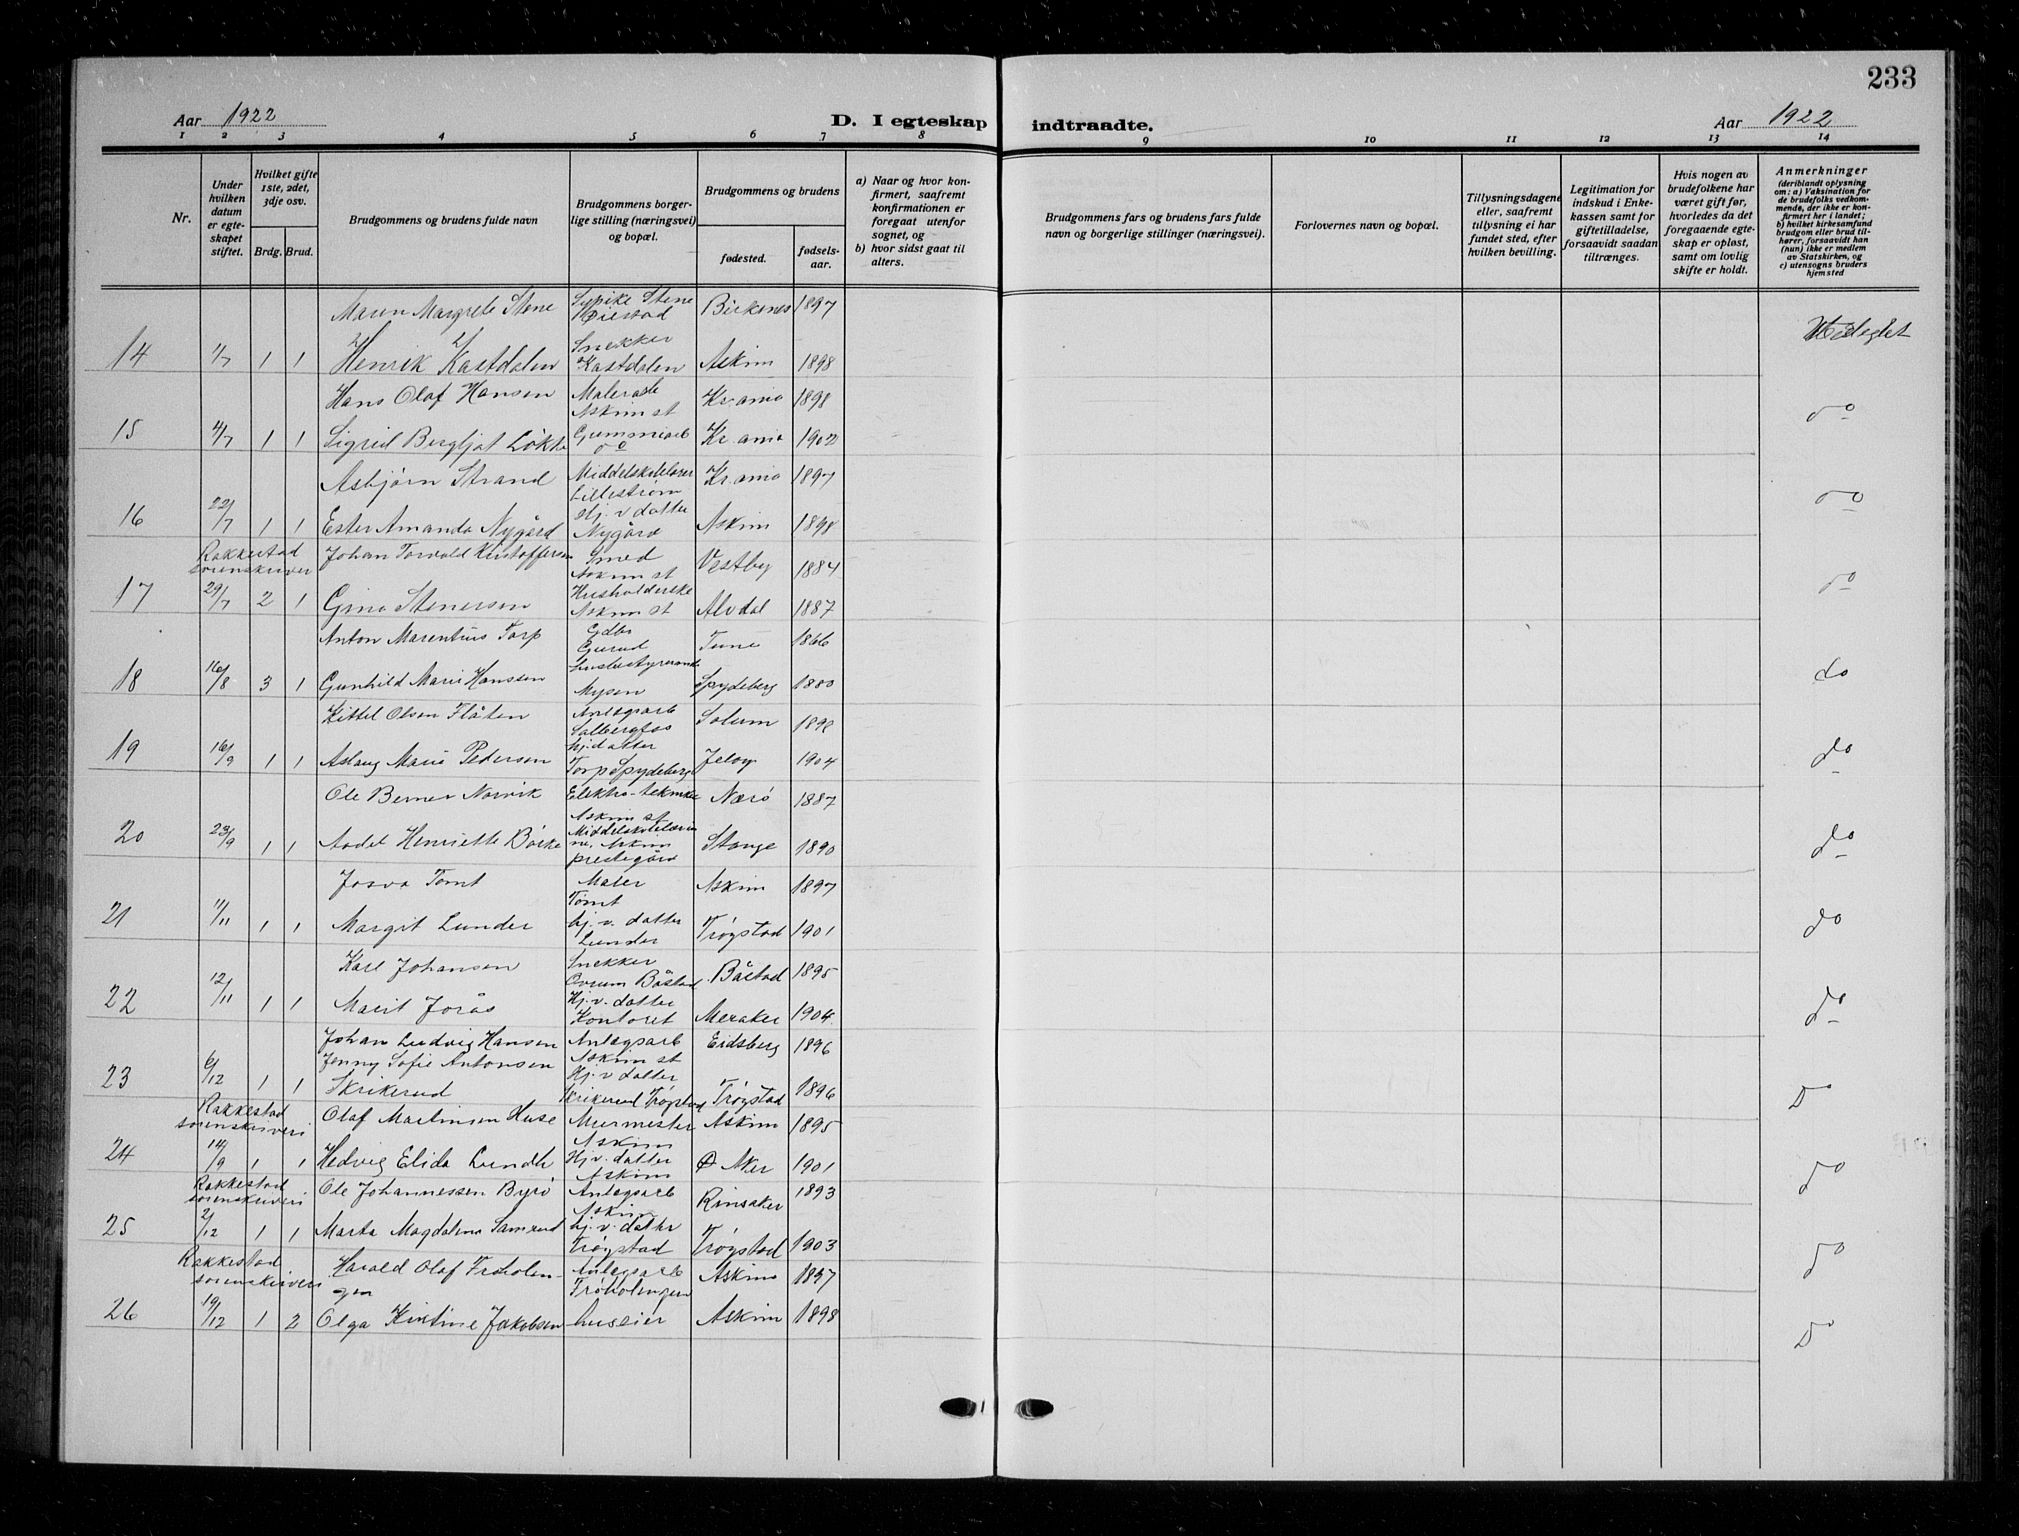 233
Aar 1922
D. I egteskap
indtraadte.
Aar 1922
1 2 3 4 5 6 7 8
9 10 11 12 13 14
Nr.
Under hvilken datum er egteskapet stiftet.
Hvilket gifte 1ste, 2det, 3dje osv.
Brdg. Brud.
Brudgommens og brudens fulde navn
Brudgommens borgerlige stilling (næringsvei) og bopæl.
Brudgommens og brudens
fødested.
fødselsaar.
a) Naar og hvor konfirmert, saafremt konfirmationen er foregaat utenfor sognet, og
b) hvor sidst gaat til alters.
Brudgommens fars og brudens fars fulde navn og borgerlige stillinger (næringsvei).
Forlovernes navn og bopæl.
Tillysningsdagene eller, saafremt tillysning ei har fundet sted, efter hvilken bevilling.
Legitimation for indskud i Enkekassen samt for giftetilladelse, forsaavidt saadan tiltrænges.
Hvis nogen av brudefolkene har været gift før, hvorledes da det foregaaende egteskap er opløst, samt om lovlig skifte er holdt.
Anmerkninger
(deriblandt oplysning om: a) Vaksination for de brudefolks vedkommende, der ikke er konfirmert her i landet; b) hvilket kirkesamfund brudgom eller brud tilhører, forsaavidt han (hun) ikke er medlem av Statskirken, og c) utensogns bruders hjemsted
Maren Margrete Stene Stene Birkenes 1897
14 1/7 1 1 Henrik Kastdalen Snekker Kastdalen Askim 1898
Hans Olaf Hansen Askim st Kr.ania 1898 do
15 4/7 1 1 Sigrid Bergljot Løkke Gummiarb do Kr.ania 1902
Asbjørn Strand Middelskolelærer Lillestrøm Kr.ania 1897 do
16 22/7 1 1 Ester Amanda Nygård Hj. v datter Nygård Askim 1898
Rakkestad sorenskriver Johan Torvald Kristoffersen Smed Askim st Vestby 1884 do
17 29/7 2 1 Gina Stenersen Husholderske Askim st Alvdal 1887
Anton Marentius Torp Gdbr Tune 1866
18 16/8 3 1 Gunhild Marie Hanssen Husbestyrerinde Mysen Spydeberg 1880 do
Kittel Olsen Flåten Anlegsarb Solbergfos Solum 1898
19 16/9 1 1 Aslaug Marie Pedersen hj. datter Torp Spydeberg Jeløy 1904 do
Ole Berner Norvik Elektro-tekniker Askim st Nærø 1887
20 23/9 1 1 Aadel Henriette Børke Middelskolelærerinne, Askim prestegård Stange 1890 do
Josva Tomt Maler Tomt Askim 1897
21 11/11 1 1 Margit Lunder hj. v. datter Lunder Trøgstad 1901 do
Karl Johansen Snekker Båstad Båstad 1895
22 12/11 1 1 Marit Jorås Hj. v. datter Kontoret Meraker 1904 do
Johan Ludvig Hansen Anlegsarb Askim st Eidsberg 1896
23 6/12 1 1 Jenny Sofie Antonsen Skrikerud Hj. v datter Skrikerud Trøgstad Trøgstad 1896 Do
Rakkestad sorenskriveri Olaf Martinsen Huse Murmester Askim Askim 1895
24 14/9 1 1 Hedvig Elida Lundh Hj v. datter Askim Ø Aker 1901 do
Rakkestad sorenskriveri Ole Johannessen Byrø Anlegsarb Askim Rinsaker 1893
25 2/12 1 1 Marta Magdalena Samrud hj. v. datter Trøgstad Trøgstad 1903 do
Rakkestad sorenskriveri Harald Olaf Frøholengen Anlegsarb Frøholengen Askim 1897
26 19/12 1 2 Olga Kristine Jakobsen huseier Askim 1898 Do